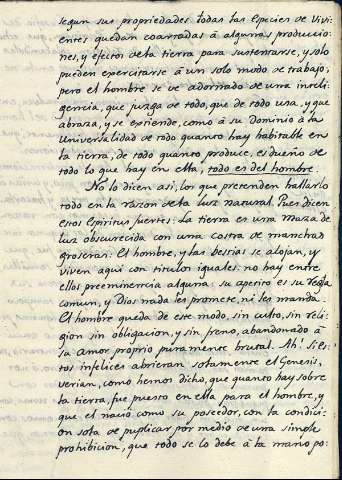 segun sus propriedades todas las Especies de Vivi-
entes quedan coartadas â algunas produccio-
nes, y efectos de la tierra para sustentarse, y solo
pueden exercitarse â un solo modo de trabajo,
pero el hombre se ve adornado de una inteli-
gencia, que juzga de todo, que de todo usa, y que
abraza, y se extiende, como â su dominio â la
Universalidad de todo quanto hay habitable en
la tierra, de todo quanto produce, es dueño de
todo lo que hay en ella, todo es del hombre.
No lo dicen asi, los que pretenden hallarlo
todo en la razon de la luz natural. Pues dicen
estos Espiritus fuertes: La tierra es una Maza de
luz obscurecida con una costra de manchas
groseras: El hombre, y las bestias se alojan, y
viven aqui con titulos iguales: no hay entre
ellos preeminencia alguna: su apetito es su Regla
comun, y Dios nada les promete, ni les manda.
El hombre queda de este modo, sin culto, sin Reli-
gion sin obligacion, y sin freno, abandonado â
su amor proprio puramente brutal. Ah! si es-
tos infelices abrieran solamente el Genesis,
verian, como hemos dicho, que quanto hay sobre
la tierra, fue puesto en ella para el hombre, y
que el nació como su poseedor, con la condici-
on sola de publicar por medio de una simple
prohibicion, que todo se lo debe â la mano po-